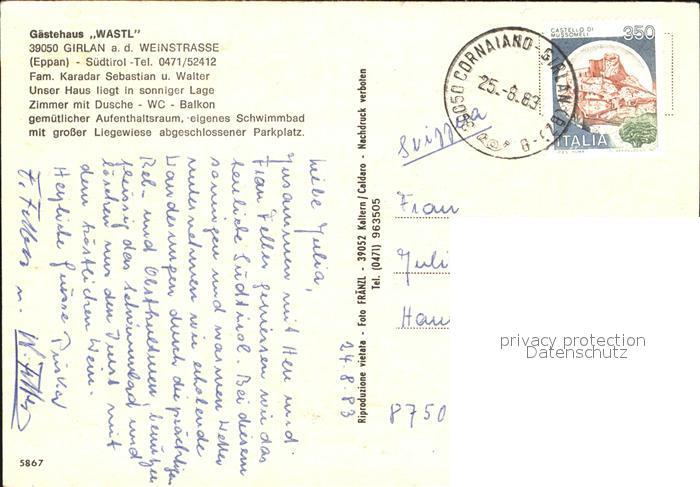 Gästehaus „WASTL"
39050 GIRLAN a. d. WEINSTRASSE
(Eppan) - Südtirol -Tel. 0471/52412
Fam. Karadar Sebastian u. Walter
Unser Haus liegt in sonniger Lage
Zimmer mit Dusche - WC - Balkon
gemütlicher Aufenthaltsraum, eigenes Schwimmbad
mit großer Liegewiese abgeschlossener Parkplatz.
Liebe Julia,
Zusammen mit Herr und
Frau Feller geniessen wir das
herrliche Südtirol. Bei diesem
sonnigen und warmen Wetter
unternehmen wir erholende
Wanderungen durch die prächtigen
Reb- und Obstkulturen, benützen
fleissig das Schwimmbad und
löschen nur den Durst mit
dem köstlichen Wein.
Herzliche Grüsse
F. Feller u. W. Feller
24.8.83
5867
Riproduzione vietata - Foto FRÄNZL - 39052 Kaltern / Caldaro - Nachdruck verboten
Tel. (0471) 963505
39050 CORNAIANO - GIRLAN (BZ)
25.-8.83
CASTELLO DI
MUSSOMELI
350
ITALIA
Svizzera
Frau
Juli
Hau
8750
privacy protection
Datenschutz